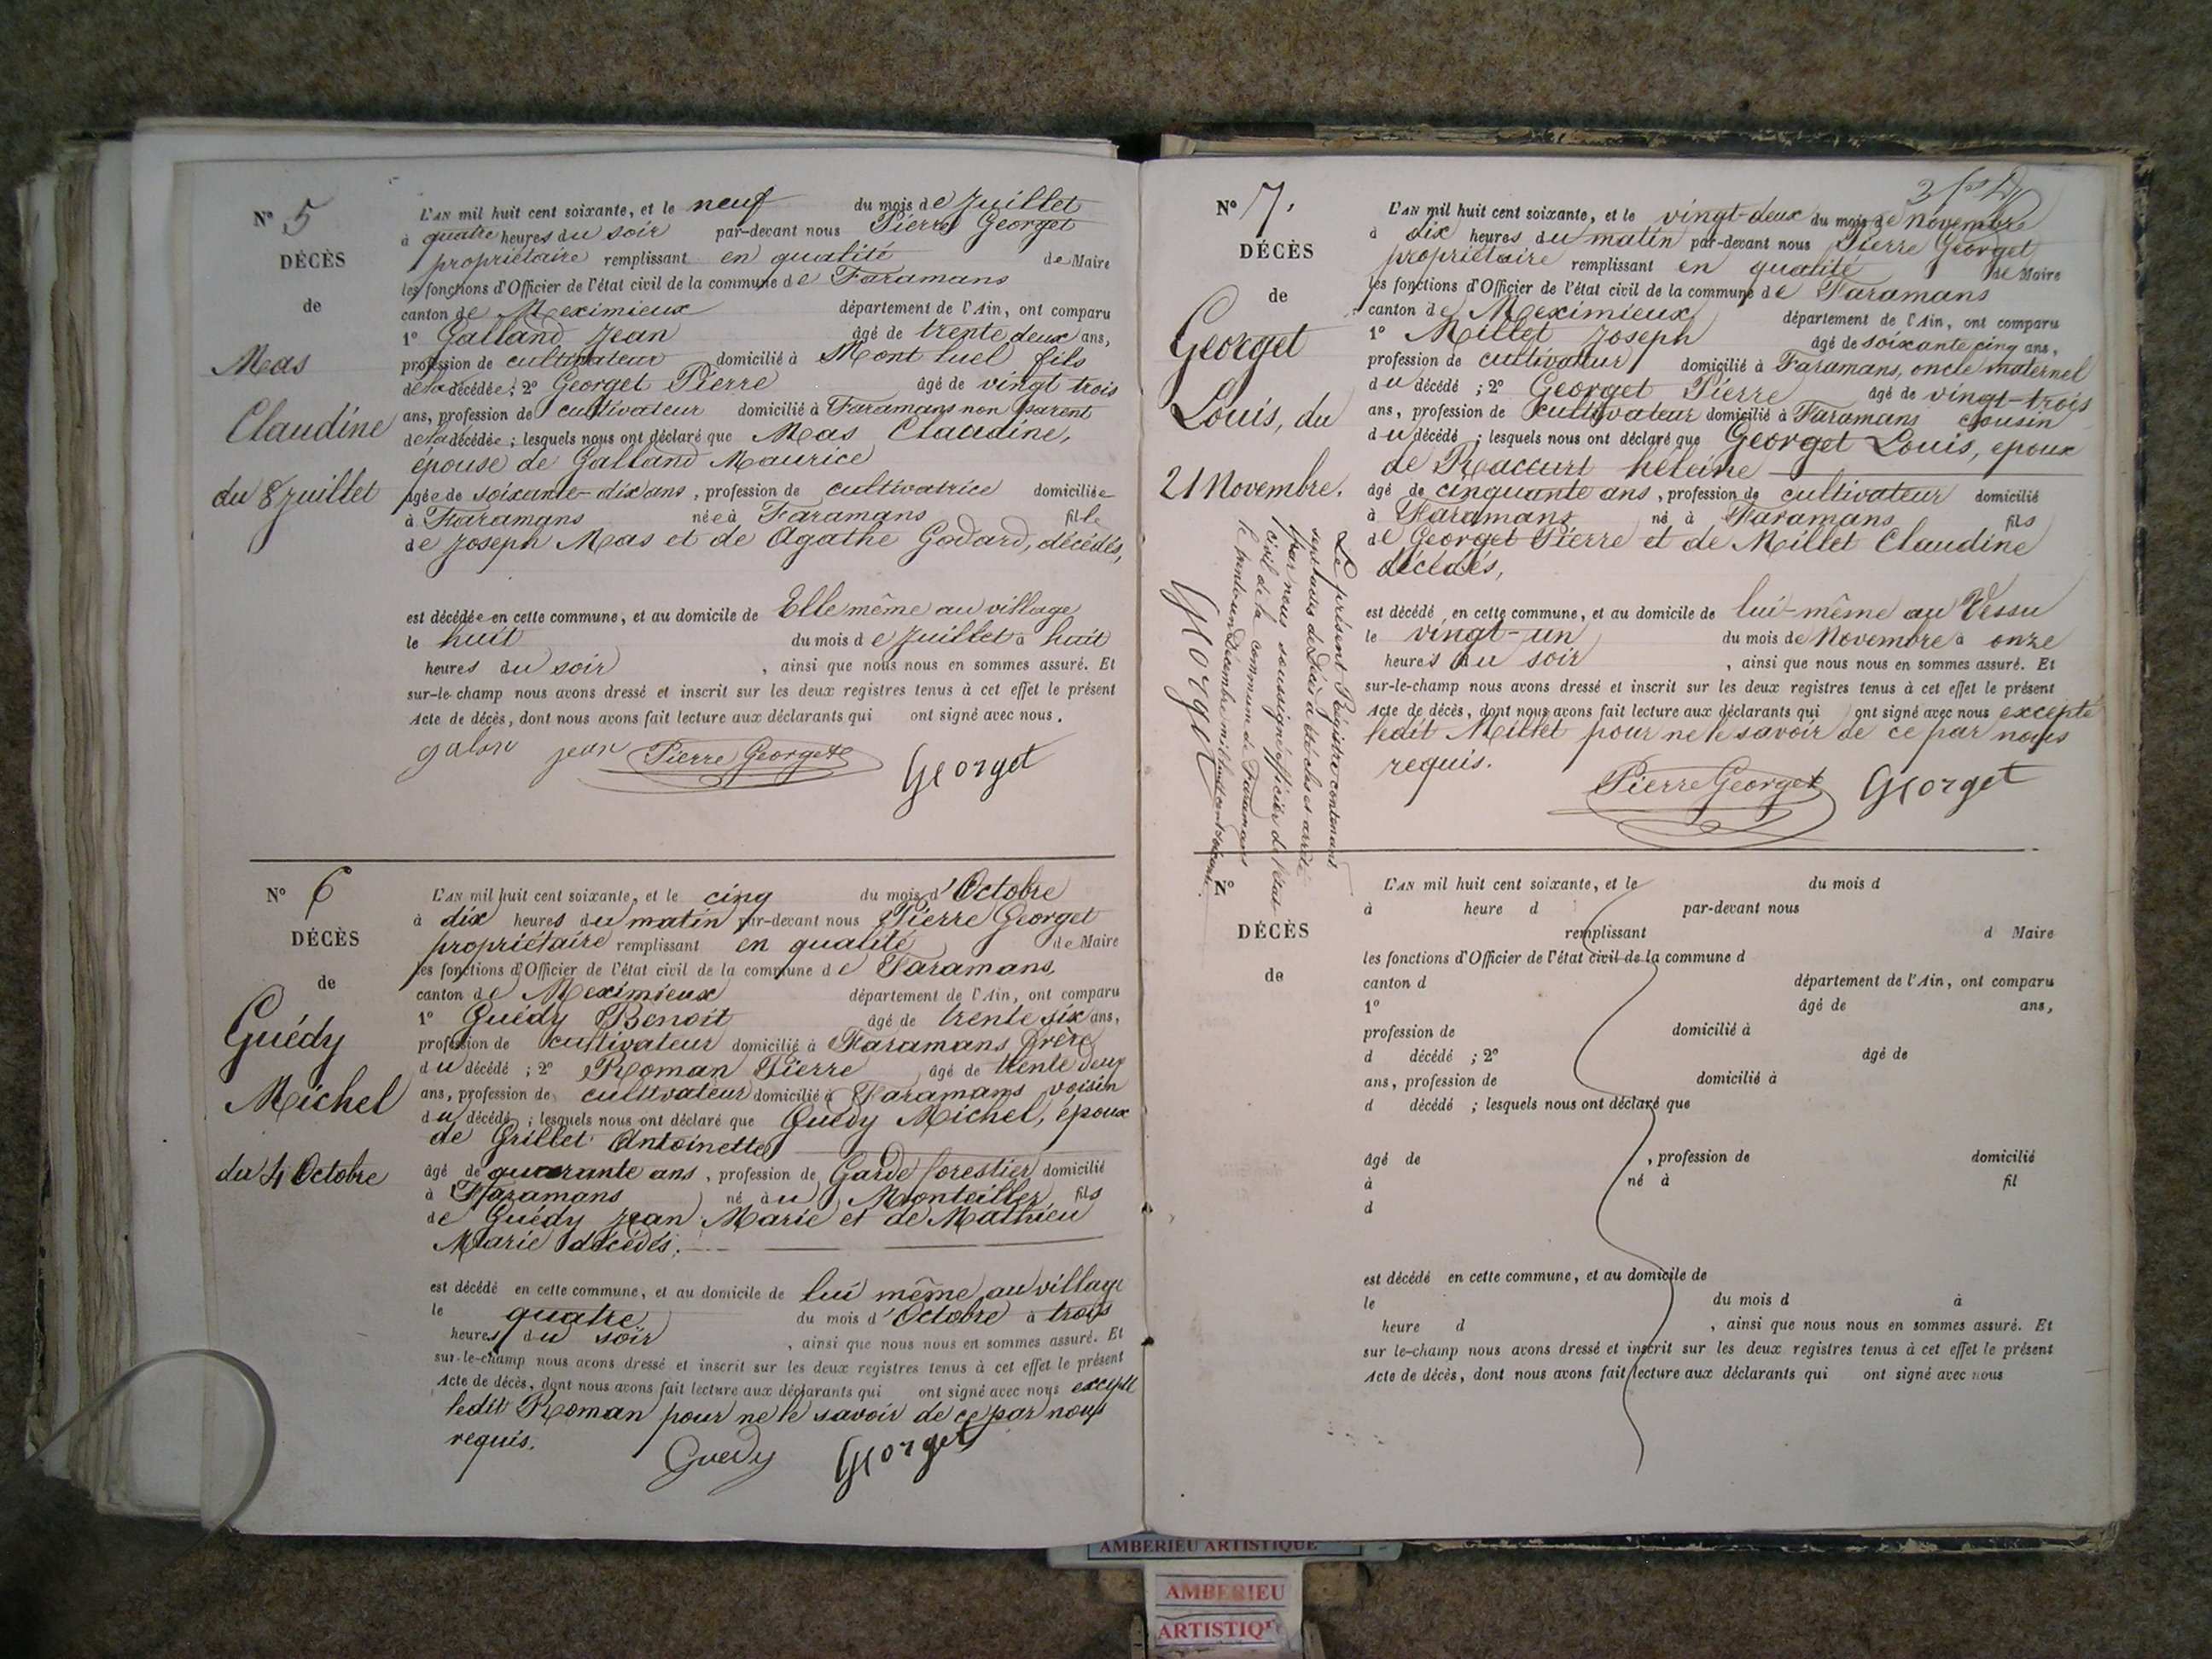 N° 5
DÉCÈS
de
Mas
Claudine
du 8 juillet
L'AN mil huit cent soixante, et le neuf du mois de Juillet
à quatre heures du soir par-devant nous Pierre Georget
propriétaire remplissant en qualité de Maire
les fonctions d'Officier de l'état civil de la commune de Faramans
canton de Meximieux département de l'Ain, ont comparu
1° Galland Jean âgé de trente deux ans,
profession de cultivateur domicilié à Mont luel fils
de la décédée ; 2° Georget Pierre âgé de vingt trois
ans, profession de cultivateur domicilié à Faramans non parent
de la décédée ; lesquels nous ont déclaré que Mas Claudine,
épouse de Galland Maurice
âgée de soixante-dix ans, profession de cultivatrice domiciliée
à Faramans née à Faramans fille
de Joseph Mas et de Agathe Godard, décédés,
est décédée en cette commune, et au domicile de Elle même au village
le huit du mois de Juillet à huit
heures du soir , ainsi que nous nous en sommes assuré. Et
sur-le-champ nous avons dressé et inscrit sur les deux registres tenus à cet effet le présent
Acte de décès, dont nous avons fait lecture aux déclarants qui ont signé avec nous.
galon jean Pierre Georget Georget
N° 6
DÉCÈS
de
Guédy
Michel
du 4 Octobre
L'AN mil huit cent soixante, et le cinq du mois d'Octobre
à dix heures du matin par-devant nous Pierre Georget
propriétaire remplissant en qualité de Maire
les fonctions d'Officier de l'état civil de la commune de Faramans,
canton de Meximieux département de l'Ain, ont comparu
1° Guédy Benoit âgé de trente six ans,
profession de cultivateur domicilié à Faramans frère
du décédé ; 2° Roman Pierre âgé de trente deux
ans, profession de cultivateur domicilié à Faramans voisin
du décédé ; lesquels nous ont déclaré que Guédy Michel, époux
de Grillet Antoinette
âgé de quarante ans, profession de Garde forestier domicilié
à Faramans né au Montellier fils
de Guédy Jean Marie et de Mathieu
Marie décédés.
est décédé en cette commune, et au domicile de lui même au village
le quatre du mois d'Octobre à trois
heures du soir , ainsi que nous nous en sommes assuré. Et
sur-le-champ nous avons dressé et inscrit sur les deux registres tenus à cet effet le présent
Acte de décès, dont nous avons fait lecture aux déclarants qui ont signé avec nous excepté
ledit Roman pour ne le savoir de ce par nous
requis.
Guedy Georget
N° 7.
DÉCÈS
de
Georget
Louis, du
21 Novembre.
L'AN mil huit cent soixante, et le vingt-deux du mois de Novembre
à dix heures du matin par-devant nous Pierre Georget
propriétaire remplissant en qualité de Maire
les fonctions d'Officier de l'état civil de la commune de Faramans
canton de Meximieux département de l'Ain, ont comparu
1° Millet Joseph âgé de soixante cinq ans,
profession de cultivateur domicilié à Faramans, oncle maternel
du décédé ; 2° Georget Pierre âgé de vingt-trois
ans, profession de cultivateur domicilié à Faramans cousin
du décédé ; lesquels nous ont déclaré que Georget Louis, epoux
de Raccurt heleine
âgé de cinquante ans, profession de cultivateur domicilié
à Faramans né à Faramans fils
de Georget Pierre et de Millet Claudine
décédés,
est décédé en cette commune, et au domicile de lui-même au Vessu
le vingt-un du mois de Novembre à onze
heures du soir , ainsi que nous nous en sommes assuré. Et
sur-le-champ nous avons dressé et inscrit sur les deux registres tenus à cet effet le présent
Acte de décès, dont nous avons fait lecture aux déclarants qui ont signé avec nous excepté
ledit Millet pour ne le savoir de ce par nous
requis.
Pierre Georget Georget
Le présent Registre contenant
sept actes de Décès a été clos et arrêté
par nous soussigné officier de l'état
civil de la commune de Faramans
le trente-un Décembre mil huit cent soixante.
Georget
N°
DÉCÈS
de
L'AN mil huit cent soixante, et le du mois d
à heure d par-devant nous
remplissant d Maire
les fonctions d'Officier de l'état civil de la commune d
canton d département de l'Ain, ont comparu
1° âgé de ans,
profession de domicilié à
d décédé ; 2° âgé de
ans, profession de domicilié à
d décédé ; lesquels nous ont déclaré que
âgé de , profession de domicilié
à né à fil
d
est décédé en cette commune, et au domicile de
le du mois d à
heure d , ainsi que nous nous en sommes assuré. Et
sur le-champ nous avons dressé et inscrit sur les deux registres tenus à cet effet le présent
Acte de décès, dont nous avons fait lecture aux déclarants qui ont signé avec nous
AMBERIEU ARTISTIQUE
AMBERIEU
ARTISTIQUE